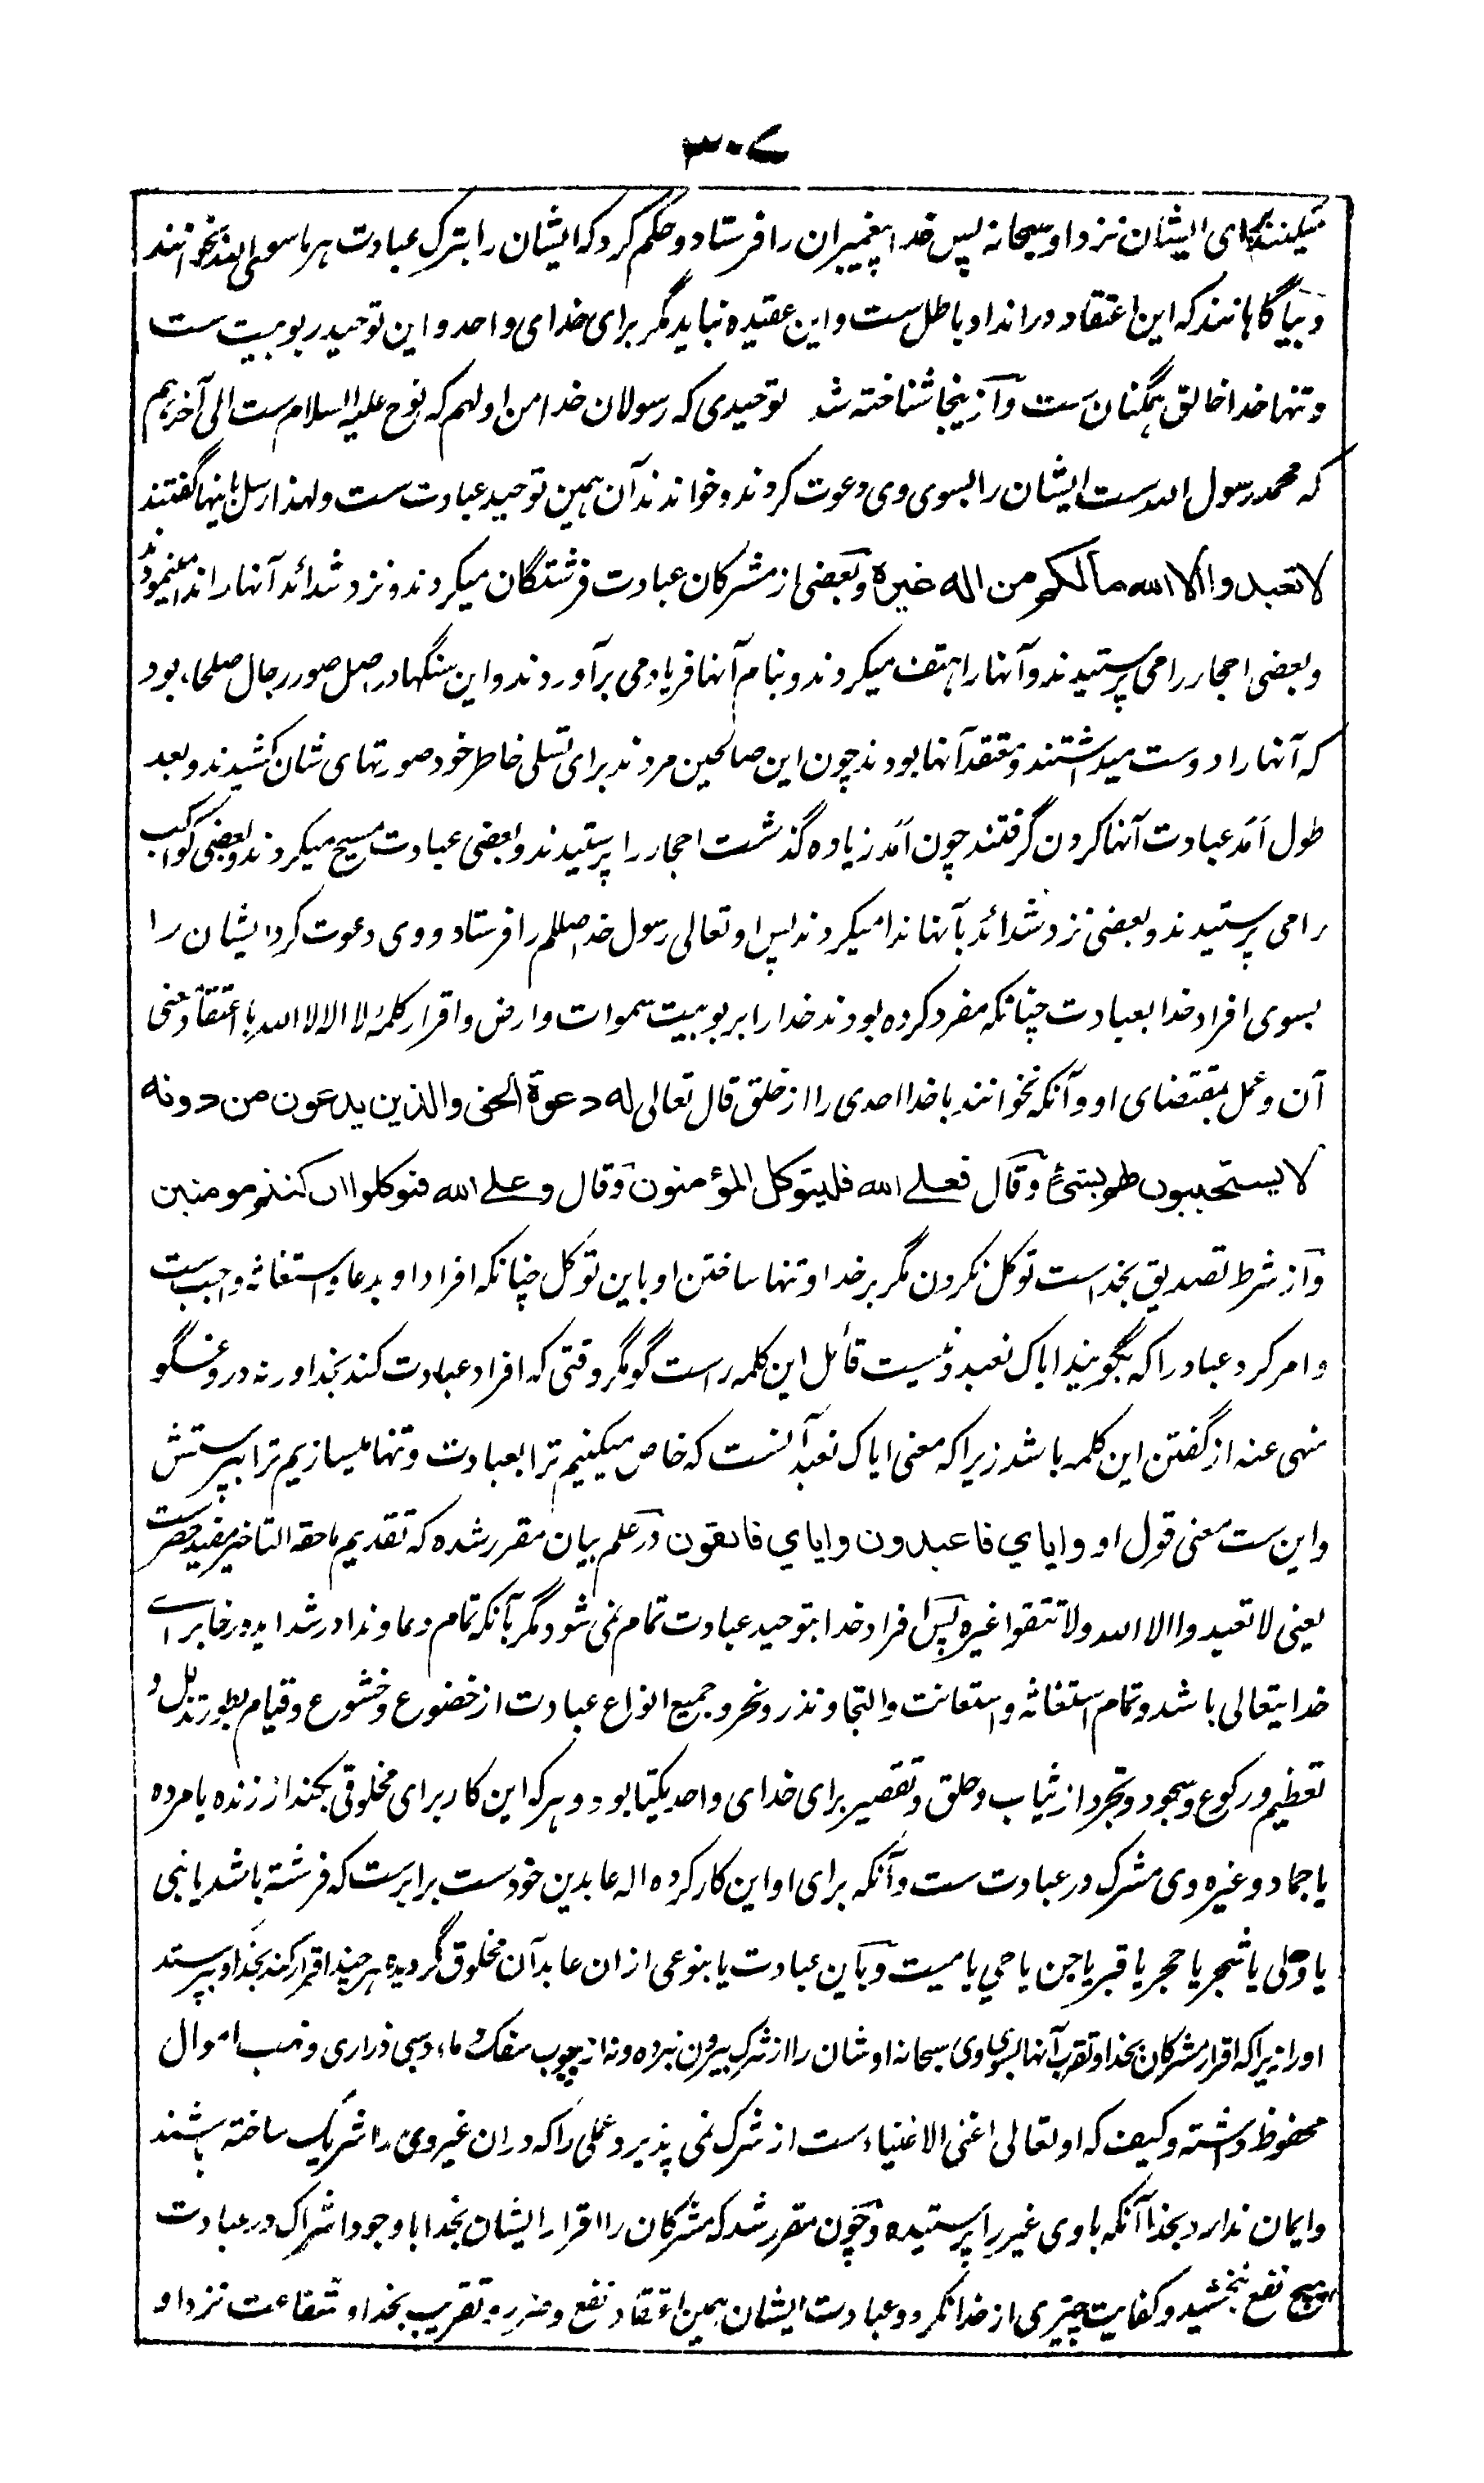 ۳۰۷
میکنند برای ایشان نزد او سبحانه پس خدا پیغمبران را فرستاد و حکم کرد که ایشان را بترک عبادت هر ما سوی الله بخوانند
و بیاگاهانند که این اعتقاد در انداد باطل ست و این عقیده نباید مگر برای خدای واحد و این توحید ربوبیت ست
و تنها خدا خالق همگنان ست و از ینجا شناخته شد توحیدی که رسولان خدا من اولهم که نوح علیه السلام ست الی آخرهم
که محمد رسول الله ست ایشان را بسوی وی دعوت کردند و خواندند آن همین توحید عبادت ست و لهذا رسل باینها گفتند
لا تعبدوا الا الله مالکم من اله غیره و بعضی از مشرکان عبادت فرشتگان میکردند و نزد شدائد آنها را ندا مینمودند
و بعضی احجار را می پرستیدند و آنها را هتف میکردند و بنام آنها فریاد می برآوردند و این سنگها در اصل صور رجال صلحاء بود
که آنها را دوست میداشتند و معتقد آنها بودند چون این صالحین مردند برای تسلی خاطر خود صورتهای شان کشیدند و بعد
طول امد عبادت آنها کردن گرفتند چون امد زیاده گذشت احجار را پرستیدند و بعضی عبادت مسیح میکردند و بعضی کواکب
را می پرستیدند و بعضی نزد شدائد بآنها ندا میکردند پس او تعالی رسول خدا صللم را فرستاد و وی دعوت کرد ایشان را
بسوی افراد خدا بعبادت چنانکه مفرد کرده بودند خدا را بربوبیت سموات وارض و اقرار کلمهٔ لا اله الا الله با اعتقاد معنی
آن و عمل بمقتضای او و آنکه نخوانند با خدا احدی را از خلق قال تعالی له دعوة الحق والذین یدعون من دونه
لا یستجیبون لهم بشیء و قال فعلی الله فلیتوکل المؤمنون و قال وعلی الله فتوکلوا ان کنتم مومنین
و از شرط تصدیق بخداست توکل نکردن مگر بر خدا و تنها ساختن او باین توکل چنانکه افراد او بدعا و استغاثه واجب ست
و امر کرد عباد را که بگویند ایاک نعبد و نیست قائل این کلمه راست گو مگر وقتی که افراد عبادت کند بخدا ورنه دروغگو
منهی عنه از گفتن این کلمه باشد زیرا که معنی ایاک نعبد آنست که خاص میکنیم ترا بعبادت و تنها میسازیم ترا بپرستش
و این ست معنی قول او وایای فاعبدون وایای فاتقون در علم بیان مقرر شده که تقدیم ما حقه التاخیر مفید حصرست
یعنی لا تعبدوا الا الله ولا تتقوا غیره پس افراد خدا بتوحید عبادت تمام نمی شود مگر بآنکه تمام دعا و ندا در شداید و رخا برای
خدایتعالی باشد و تمام استغاثه و استعانت و التجا و نذر و نحر و جمیع انواع عبادت از خضوع و خشوع و قیام بطور تذلل و
تعظیم و رکوع و سجود و تجرد از ثیاب و حلق و تقصیر برای خدای واحد یکتا بود و هر که این کار برای مخلوقی بکند از زنده یا مرده
یا جماد و غیره وی مشرک در عبادت ست و آنکه برای او این کار کرده اله عابدین خودست برابرست که فرشته باشد یا نبی
یا ولی یا شجر یا حجر یا قبر یا جن یا حی یا میت و باین عبادت یا بنوعی از ان عابد آن مخلوق گردیده هر چند اقرار کند بخدا و بپرستد
او را زیرا که اقرار مشرکان بخدا و تقرب آنها بسوی وی سبحانه اوشان را از شرک بیرون نبرده و نه از وجوب سفک دماء و سبی ذراری و نهب اموال
محفوظ داشته و کیف که او تعالی اغنی الاغنیاء ست از شرک نمی پذیرد عملی را که در ان غیر وی را شریک ساخته باشند
و ایمان ندارد بخدا آنکه با وی غیر را پرستیده و چون مقرر شد که مشرکان را اقرار ایشان بخدا با وجود اشراک در عبادت
هیچ نفع نبخشید و کفایت چیزی از خدا نکرد و عبادت ایشان همین اعتقاد نفع و ضرر و تقریب بخدا و شفاعت نزد او